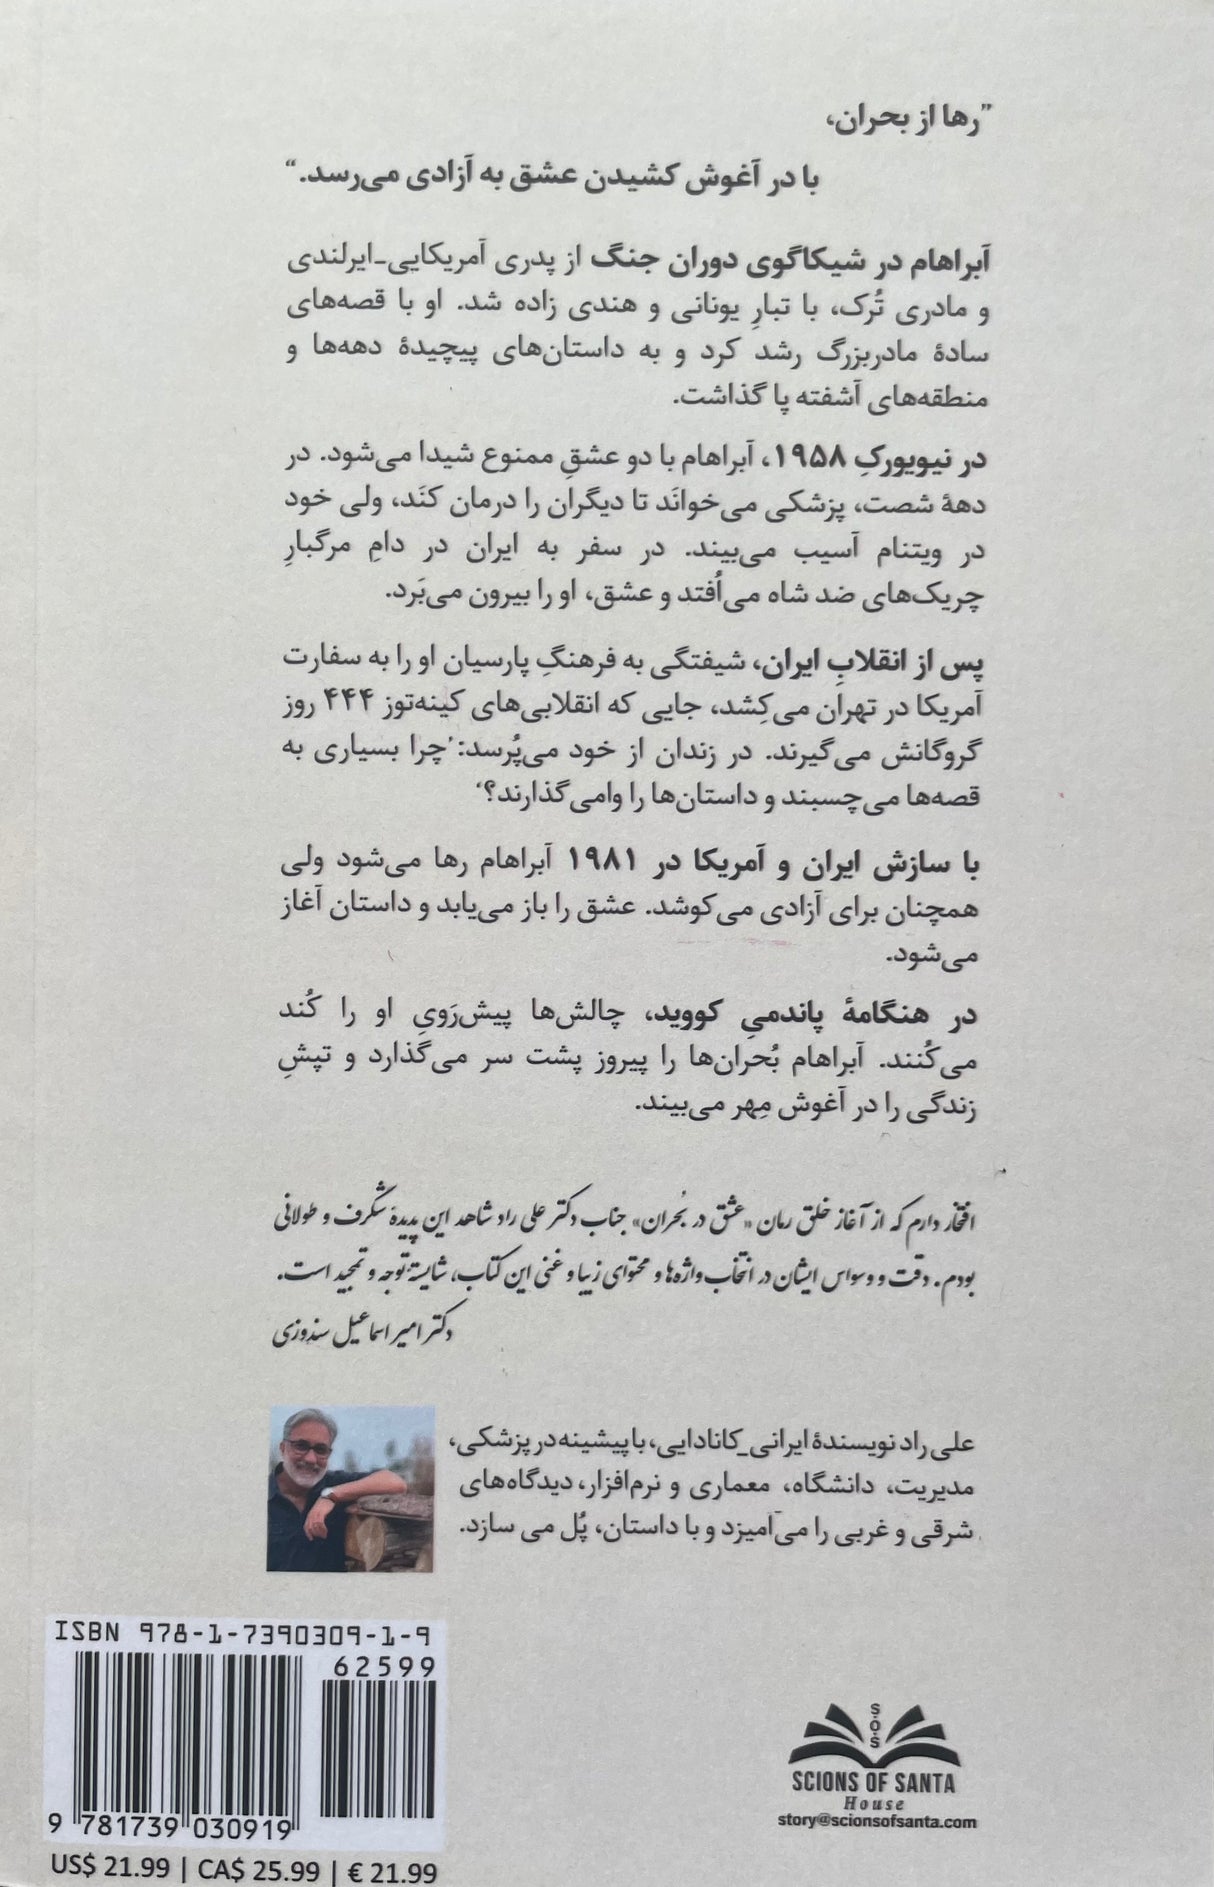 ”رها از بحران،
با در آغوش کشیدن عشق به آزادی می‌رسد.“
آبراهام در شیکاگوی دوران جنگ از پدری آمریکایی-ایرلندی
و مادری تُرک، با تبارِ یونانی و هندی زاده شد. او با قصه‌های
سادهٔ مادربزرگ رشد کرد و به داستان‌های پیچیدهٔ دهه‌ها و
منطقه‌های آشفته پا گذاشت.
در نیویورکِ ۱۹۵۸، آبراهام با دو عشقِ ممنوع شیدا می‌شود. در
دههٔ شصت، پزشکی می‌خوانَد تا دیگران را درمان کنَد، ولی خود
در ویتنام آسیب می‌بیند. در سفر به ایران در دامِ مرگبارِ
چریک‌های ضد شاه می‌اُفتد و عشق، او را بیرون می‌بَرد.
پس از انقلابِ ایران، شیفتگی به فرهنگِ پارسیان او را به سفارت
آمریکا در تهران می‌کِشد، جایی که انقلابی‌های کینه‌توز ۴۴۴ روز
گروگانش می‌گیرند. در زندان از خود می‌پُرسد: ’چرا بسیاری به
قصه‌ها می‌چسبند و داستان‌ها را وامی‌گذارند؟‘
با سازش ایران و آمریکا در ۱۹۸۱ آبراهام رها می‌شود ولی
همچنان برای آزادی می‌کوشد. عشق را باز می‌یابد و داستان آغاز
می‌شود.
در هنگامهٔ پاندمیِ کووید، چالش‌ها پیش‌رَویِ او را کُند
می‌کُنند. آبراهام بُحران‌ها را پیروز پشت سر می‌گذارد و تپشِ
زندگی را در آغوش مِهر می‌بیند.
افتخار دارم که از آغاز خلق رمان «عشق در بُحران» جناب دکتر علی راد شاهد این پدیدهٔ شگرف و طولانی
بودم. دقت و وسواس ایشان در انتخاب واژه‌ها و محتوای زیبا و غنی این کتاب، شایستهٔ توجه و تمجید است.
دکتر امیر اسماعیل سندوزی
علی راد نویسندهٔ ایرانی_کانادایی، با پیشینه در پزشکی،
مدیریت، دانشگاه، معماری و نرم‌افزار، دیدگاه‌های
شرقی و غربی را می‌آمیزد و با داستان، پُل می سازد.
ISBN 978-1-7390309-1-9
62599
9 781739 030919
US$ 21.99 | CA$ 25.99 | € 21.99
S.O.S
SCIONS OF SANTA
House
story@scionsofsanta.com